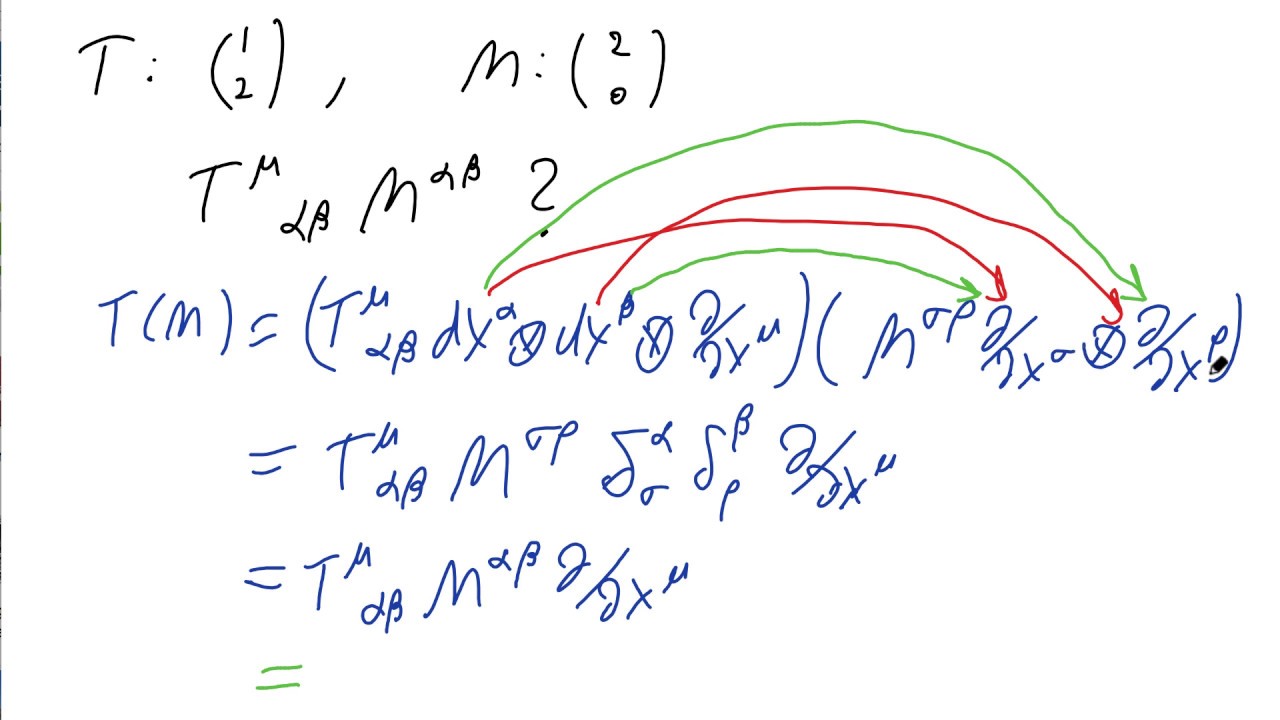 T : (1 2) , M : (2 0)
T^μ_αβ M^αβ ?
T(M) = (T^μ_αβ dx^α ⊗ dx^β ⊗ ∂/∂x^μ)(M^σρ ∂/∂x^σ ⊗ ∂/∂x^ρ)
= T^μ_αβ M^σρ δ^α_σ δ^β_ρ ∂/∂x^μ
= T^μ_αβ M^αβ ∂/∂x^μ
=